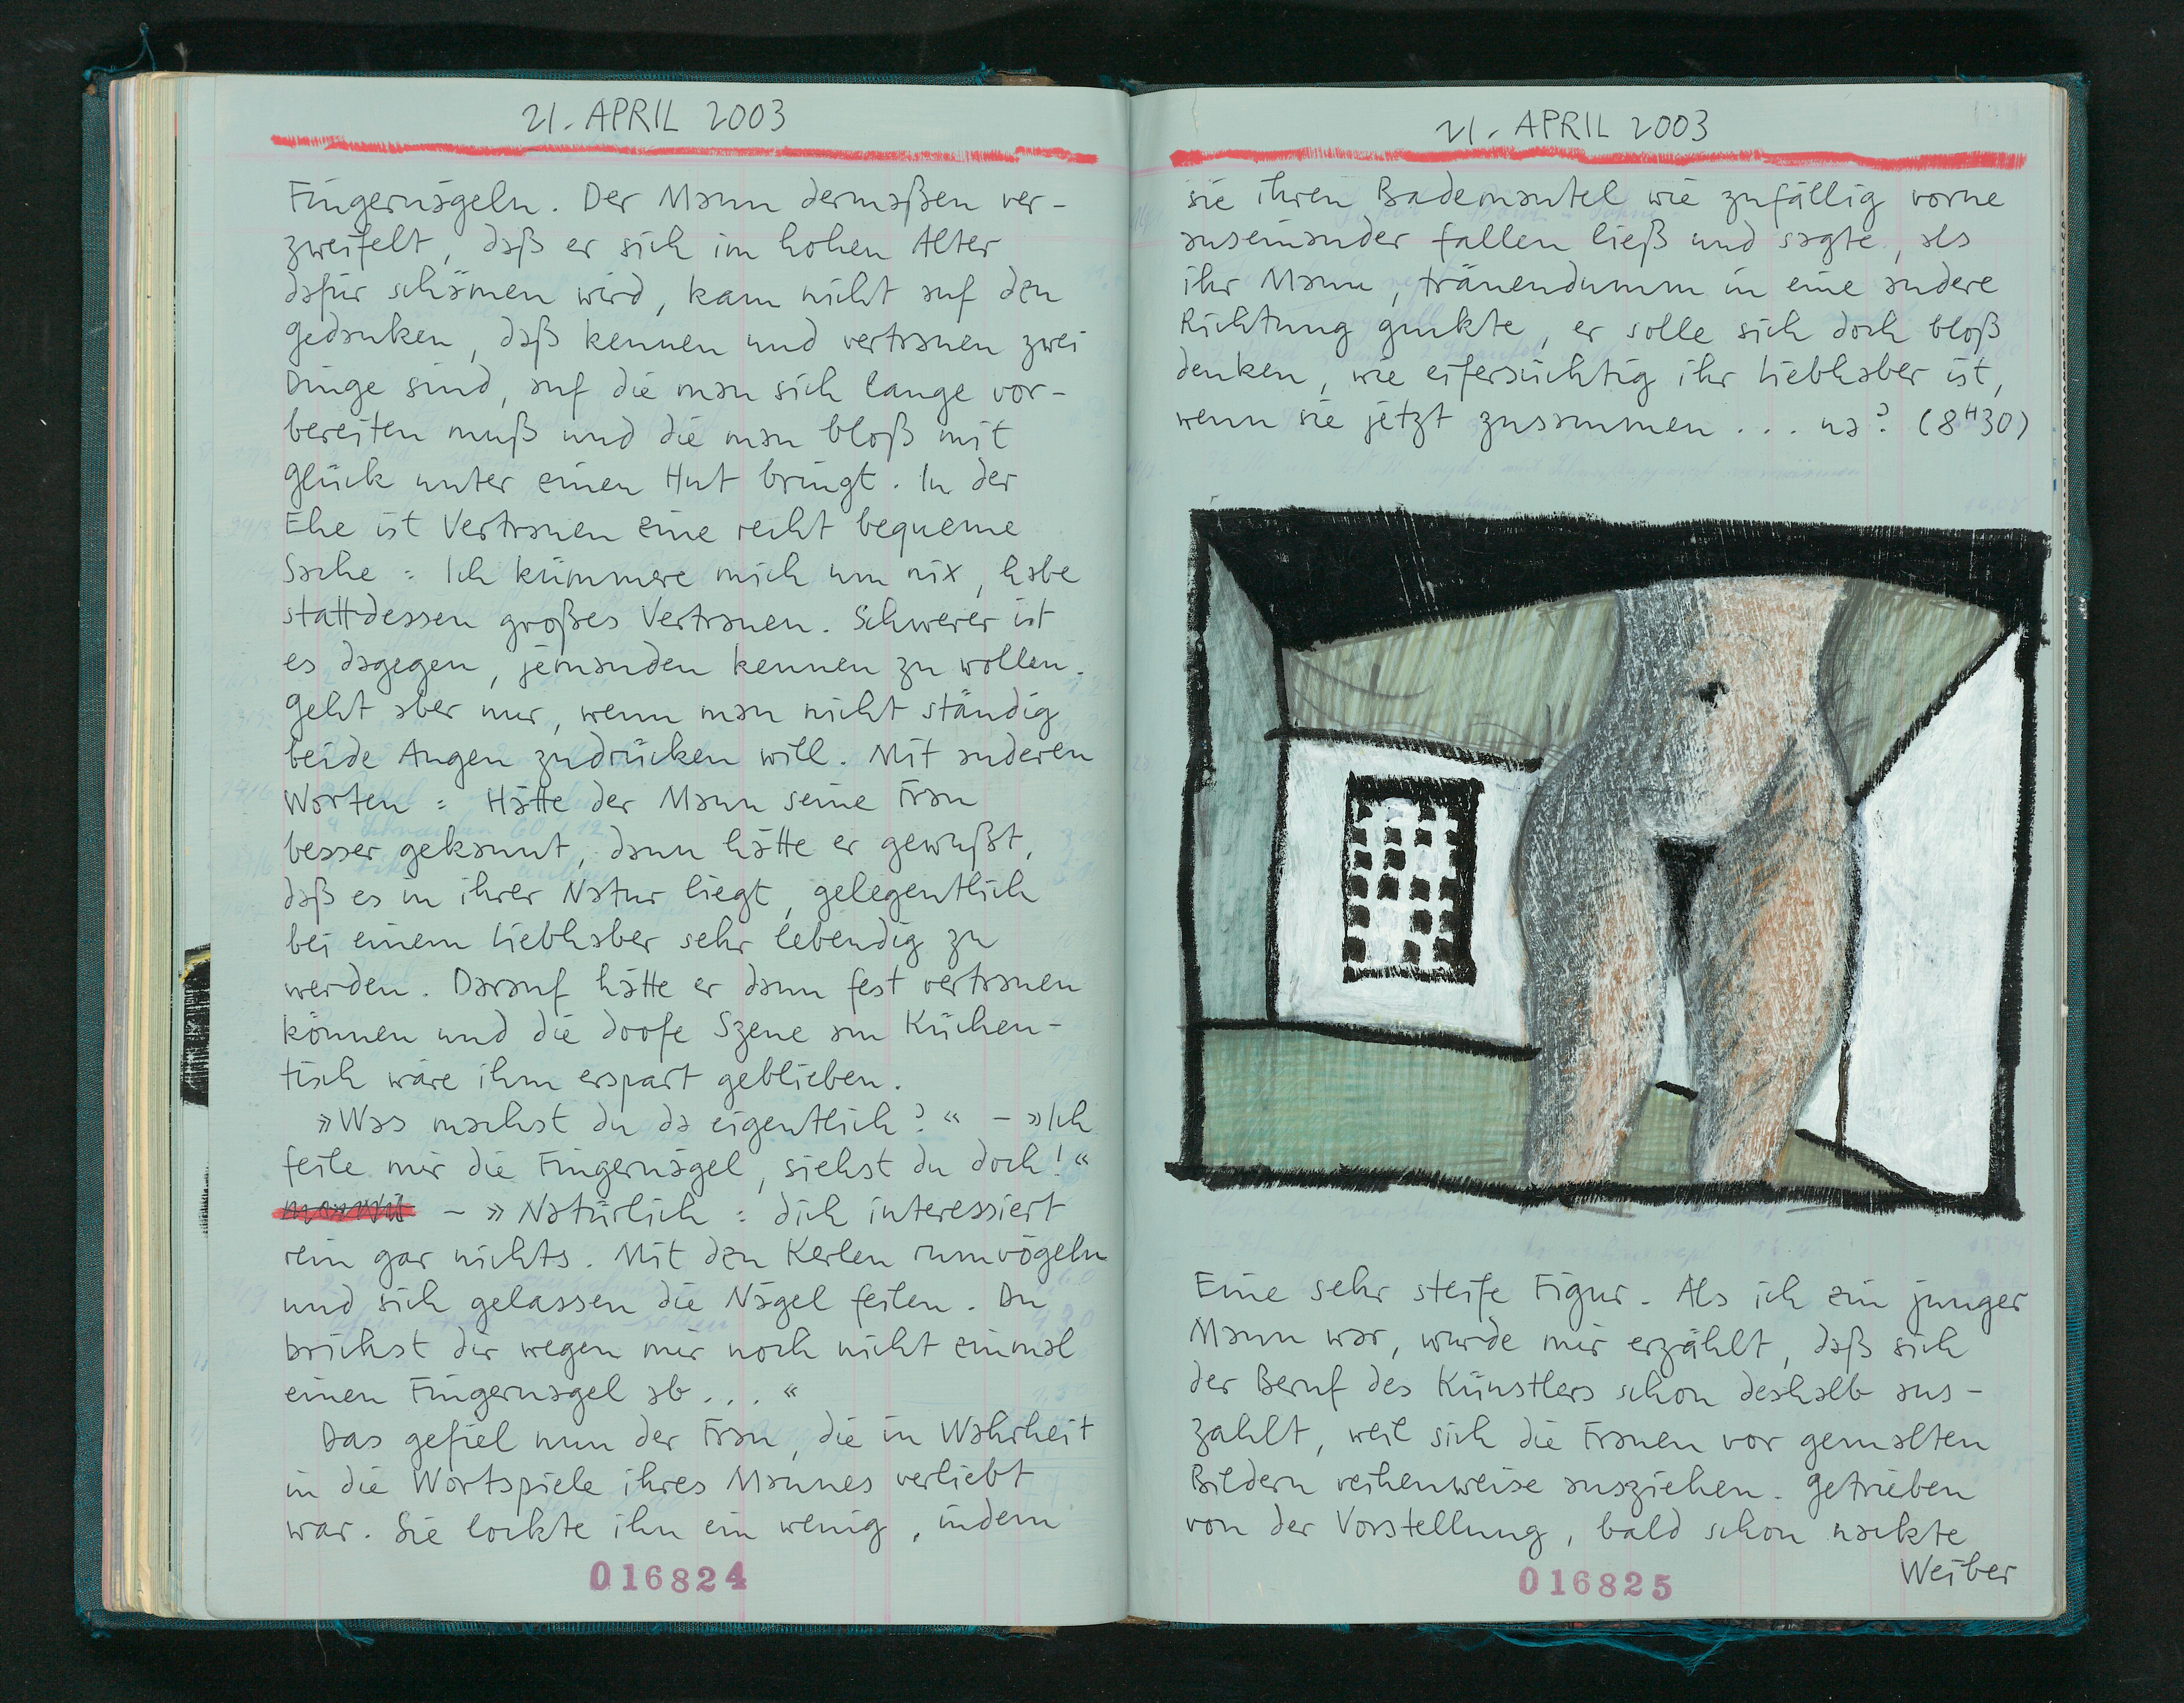 21. APRIL 2003
Fingernägeln. Der Mann dermaßen ver-
zweifelt, daß er sich im hohen Alter
dafür schämen wird, kam nicht auf den
Gedanken, daß kennen und vertrauen zwei
Dinge sind, auf die man sich lange vor-
bereiten muß und die man bloß mit
Glück unter einen Hut bringt. In der
Ehe ist Vertrauen eine recht bequeme
Sache: Ich kümmere mich um nix, habe
stattdessen großes Vertrauen. Schwerer ist
es dagegen, jemanden kennen zu wollen.
Geht aber nur, wenn man nicht ständig
beide Augen zudrücken will. Mit anderen
Worten: Hätte der Mann seine Frau
besser gekannt, dann hätte er gewußt,
daß es in ihrer Natur liegt, gelegentlich
bei einem Liebhaber sehr lebendig zu
werden. Darauf hätte er dann fest vertrauen
können und die doofe Szene am Küchen-
tisch wäre ihm erspart geblieben.
»Was machst du da eigentlich?« – »Ich
feile mir die Fingernägel, siehst du doch!«
– »Natürlich: dich interessiert
rein gar nichts. Mit den Kerlen rumvögeln
und sich gelassen die Nägel feilen. Du
brichst dir wegen mir noch nicht einmal
einen Fingernagel ab...«
Das gefiel nun der Frau, die in Wahrheit
in die Wortspiele ihres Mannes verliebt
war. Sie lockte ihn ein wenig, indem
016824
21. APRIL 2003
sie ihren Bademantel wie zufällig vorne
auseinander fallen ließ und sagte, als
ihr Mann, tränendumm in eine andere
Richtung guckte, er solle sich doch bloß
denken, wie eifersüchtig ihr Liebhaber ist,
wenn sie jetzt zusammen ... na? (8H30)
Eine sehr steife Figur. Als ich ein junger
Mann war, wurde mir erzählt, daß sich
der Beruf des Künstlers schon deshalb aus-
zahlt, weil sich die Frauen vor gemalten
Bildern reihenweise ausziehen. Getrieben
von der Vorstellung, bald schon nackte
Weiber
016825